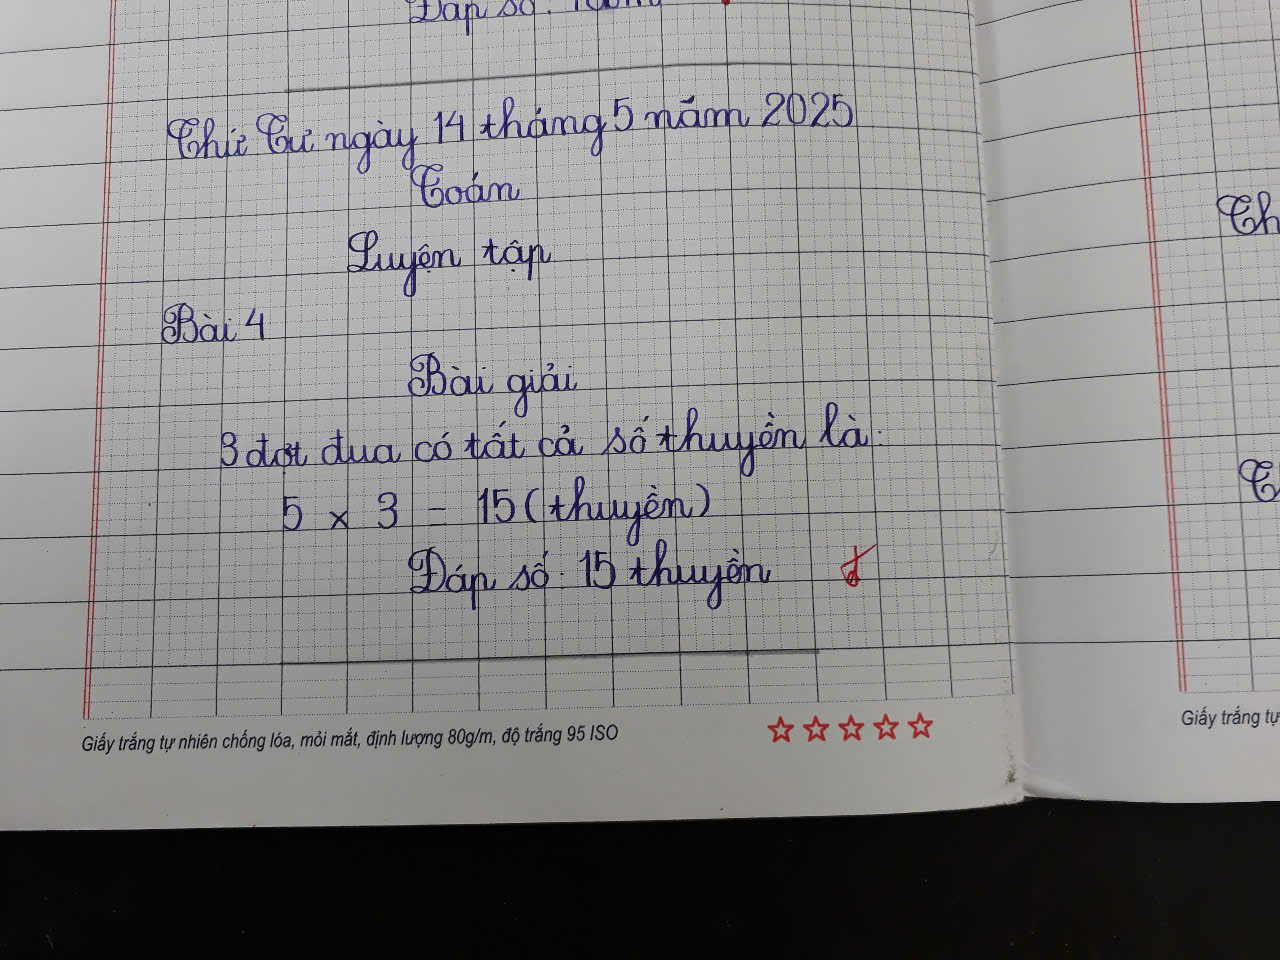 Đáp số:
Thứ Tư ngày 14 tháng 5 năm 2025
Toán
Luyện tập
Bài 4
Bài giải
3 đợt đua có tất cả số thuyền là:
5 x 3 = 15 (thuyền)
Đáp số: 15 thuyền đ
Giấy trắng tự nhiên chống lóa, mỏi mắt, định lượng 80g/m, độ trắng 95 ISO
Th
Giấy trắng tự